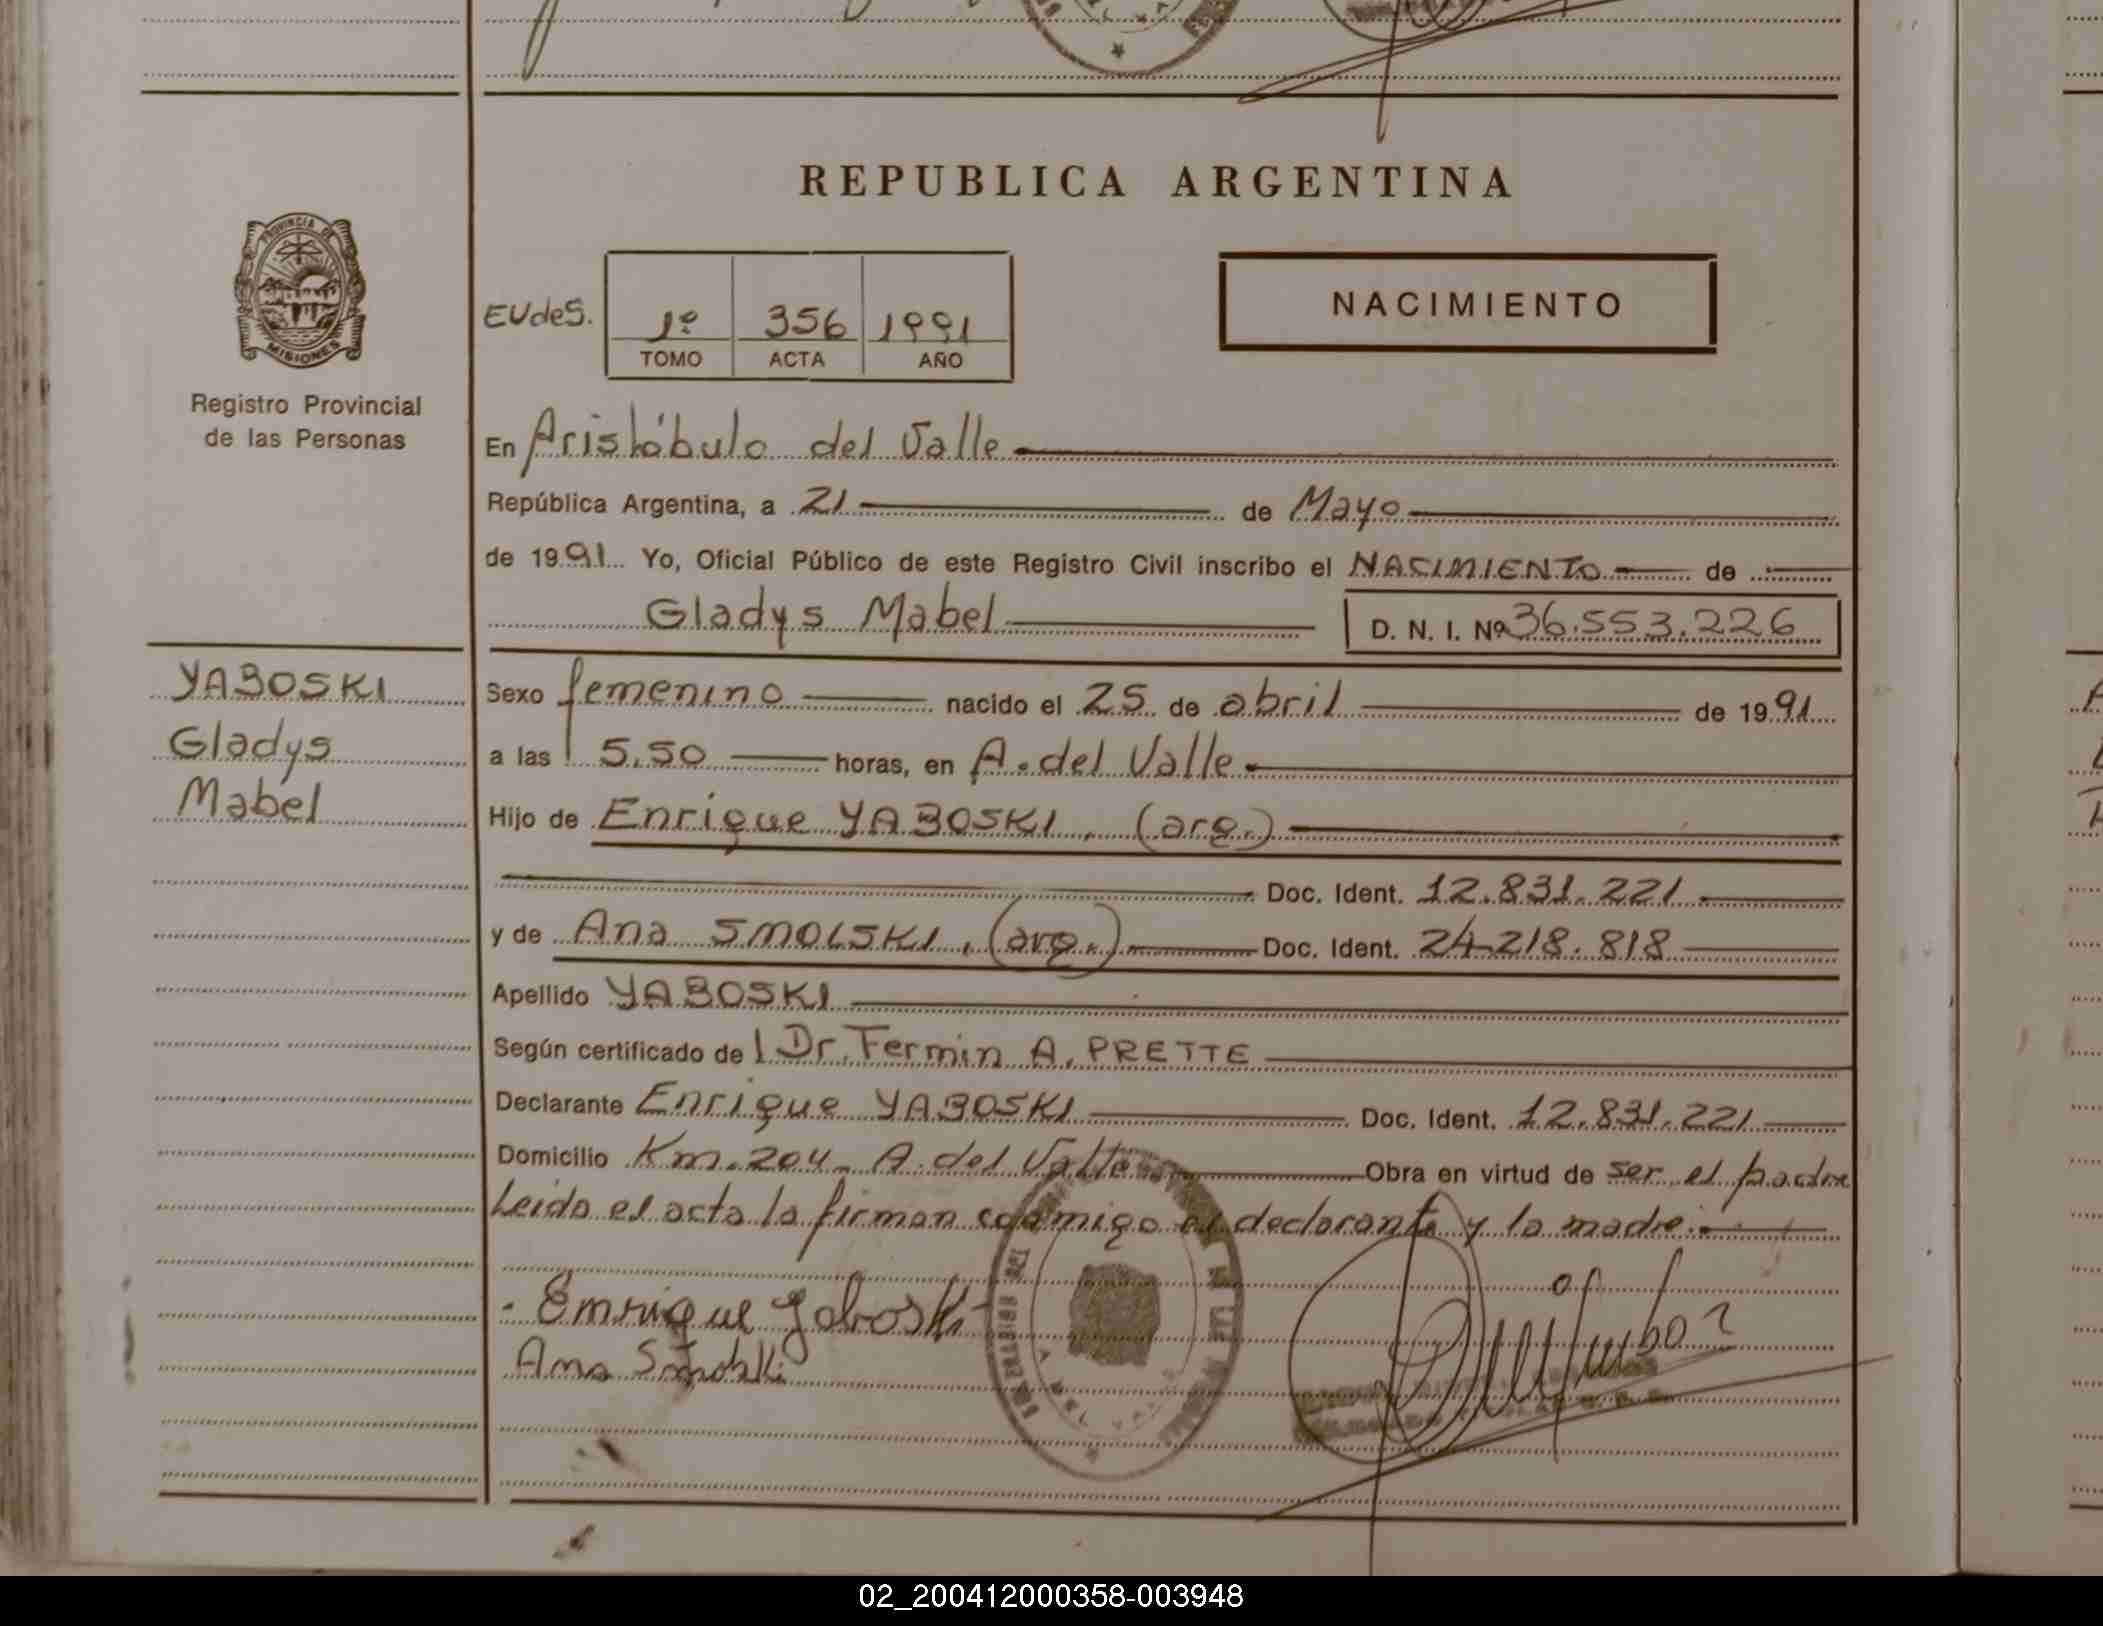 REPUBLICA ARGENTINA
PROVINCIA DE
MISIONES
Registro Provincial
de las Personas
EUdeS.
1º 356 1991
TOMO ACTA AÑO
NACIMIENTO
En Aristóbulo del Valle
República Argentina, a 21 de Mayo
de 1991 Yo, Oficial Público de este Registro Civil inscribo el NACIMIENTO de
Gladys Mabel D. N. I. Nº 36.553.226
YABOSKI
Gladys
Mabel
Sexo femenino nacido el 25 de abril de 1991
a las 5,50 horas, en A. del Valle
Hijo de Enrique YABOSKI, (arg.)
Doc. Ident. 12.831.221
y de Ana SMOLSKI, (arg.) Doc. Ident. 24.218.818
Apellido YABOSKI
Según certificado de Dr. Fermin A. PRETTE
Declarante Enrique YABOSKI Doc. Ident. 12.831.221
Domicilio Km. 204 - A. del Valle Obra en virtud de ser el padre
Leida el acta la firman conmigo el declarante y la madre.
Enrique Yaboski
Ana Smolski
02_200412000358-003948